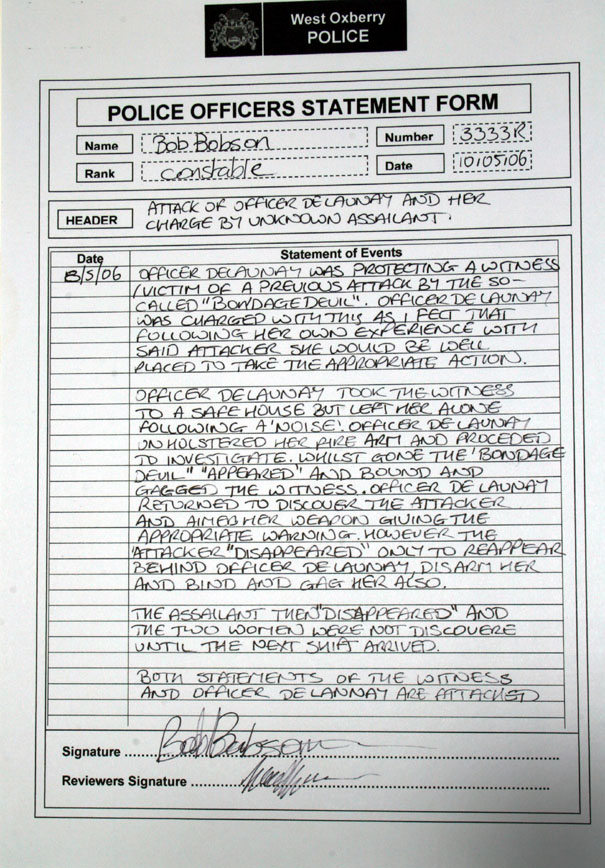 West Oxberry
POLICE
POLICE OFFICERS STATEMENT FORM
Name Bob Bobson Number 3333R
Rank Constable Date 10/05/06
HEADER ATTACK OF OFFICER DE LAUNAY AND HER
CHARGE BY UNKNOWN ASSAILANT.
Date Statement of Events
8/5/06 OFFICER DELAUNAY WAS PROTECTING A WITNESS
/VICTIM OF A PREVIOUS ATTACK BY THE SO-
CALLED "BONDAGE DEVIL". OFFICER DE LAUNAY
WAS CHARGED WITH THIS AS I FECT THAT
FOLLOWING HER OWN EXPERIENCE WITH
SAID ATTACKER SHE WOULD BE WELL
PLACED TO TAKE THE APPROPRIATE ACTION.
OFFICER DE LAUNAY TOOK THE WITNESS
TO A SAFE HOUSE BUT LEFT HER ALONE
FOLLOWING A 'NOISE'. OFFICER DE LAUNAY
UNHOLSTERED HER FIRE ARM AND PROCEDED
TO INVESTIGATE. WHILST GONE THE 'BONDAGE
DEVIL" "APPEARED" AND BOUND AND
GAGGED THE WITNESS. OFFICER DE LAUNAY
RETURNED TO DISCOVER THE ATTACKER
AND AIMED HER WEAPON GIVING THE
APPROPRIATE WARNING. HOWEVER THE
ATTACKER "DISAPPEARED" ONLY TO REAPPEAR
BEHIND OFFICER DE LAUNAY, DISARM HER
AND BIND AND GAG HER ALSO.
THE ASSAILANT THEN "DISAPPEARED" AND
THE TWO WOMEN WERE NOT DISCOVERE
UNTIL THE NEXT SHIFT ARRIVED.
BOTH STATEMENTS OF THE WITNESS
AND OFFICER DE LANNAY ARE ATTACHED
Signature Bob Bobson
Reviewers Signature